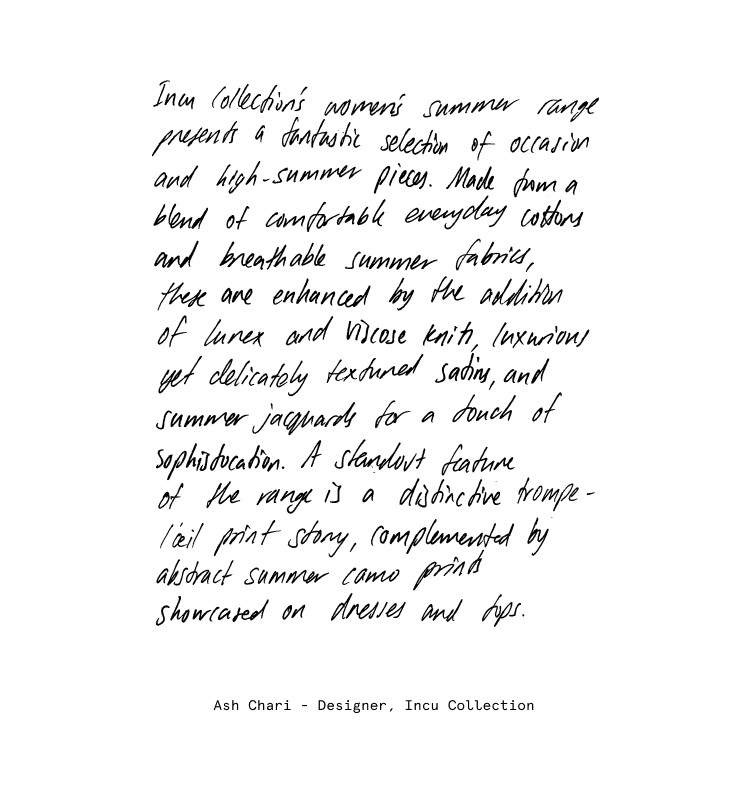 Incu Collection's women's summer range
presents a fantastic selection of occasion
and high-summer pieces. Made from a
blend of comfortable everyday cottons
and breathable summer fabrics,
these are enhanced by the addition
of lurex and viscose knits, luxurious
yet delicately textured satins, and
summer jacquards for a touch of
sophistocation. A standout feature
of the range is a distinctive trompe-
l'œil print story, complemented by
abstract summer camo prints
showcased on dresses and tops.
Ash Chari - Designer, Incu Collection